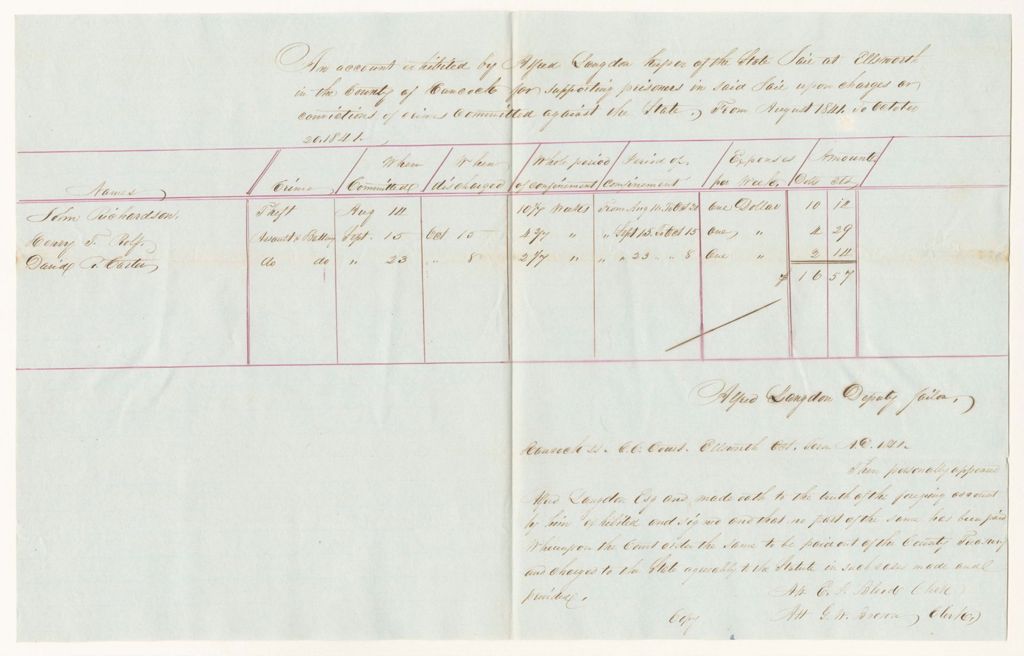 An account exhibited by Alfred Langdon keeper of the State Jail at Ellsworth
in the County of Hancock for supporting prisoners in said Jail upon charges or
convictions of crimes Committed against the State, From August 1841. to October
20. 1841.
Names Crime When Committed When discharged Whole period of confinement Period of confinement Expenses per Week Amount Dols cts
John Richardson Theft Aug 14 10 1/7 Weeks From Aug 14. to Oct 20 One Dollar 10 14
Henry T. Rolf Assault & Battery Sept. 15 Oct 15 4 2/7 " " Sept 15 to Oct 15 One " 4 29
David Carter do do " 23 " 8 2 1/7 " " " 23 " " 8 One " 2 14
16 57
Alfred Langdon Deputy Jailor
Hancock ss. C. C. Court. Ellsworth Oct. Term A.D. 1841.
Then personally appeared
Alfred Langdon Esq and made oath to the truth of the foregoing account
by him exhibited and signed and that no part of the same has been paid
Whereupon the Court order the same to be paid out of the County Treasury
and charged to the State agreeably to the Statute in such cases made and
provided.
Att Clerk
Copy Att G. W. Brown, Clerk